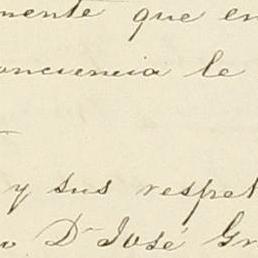 mente que en
onciencia le
y sus respet
o Dn José Gr